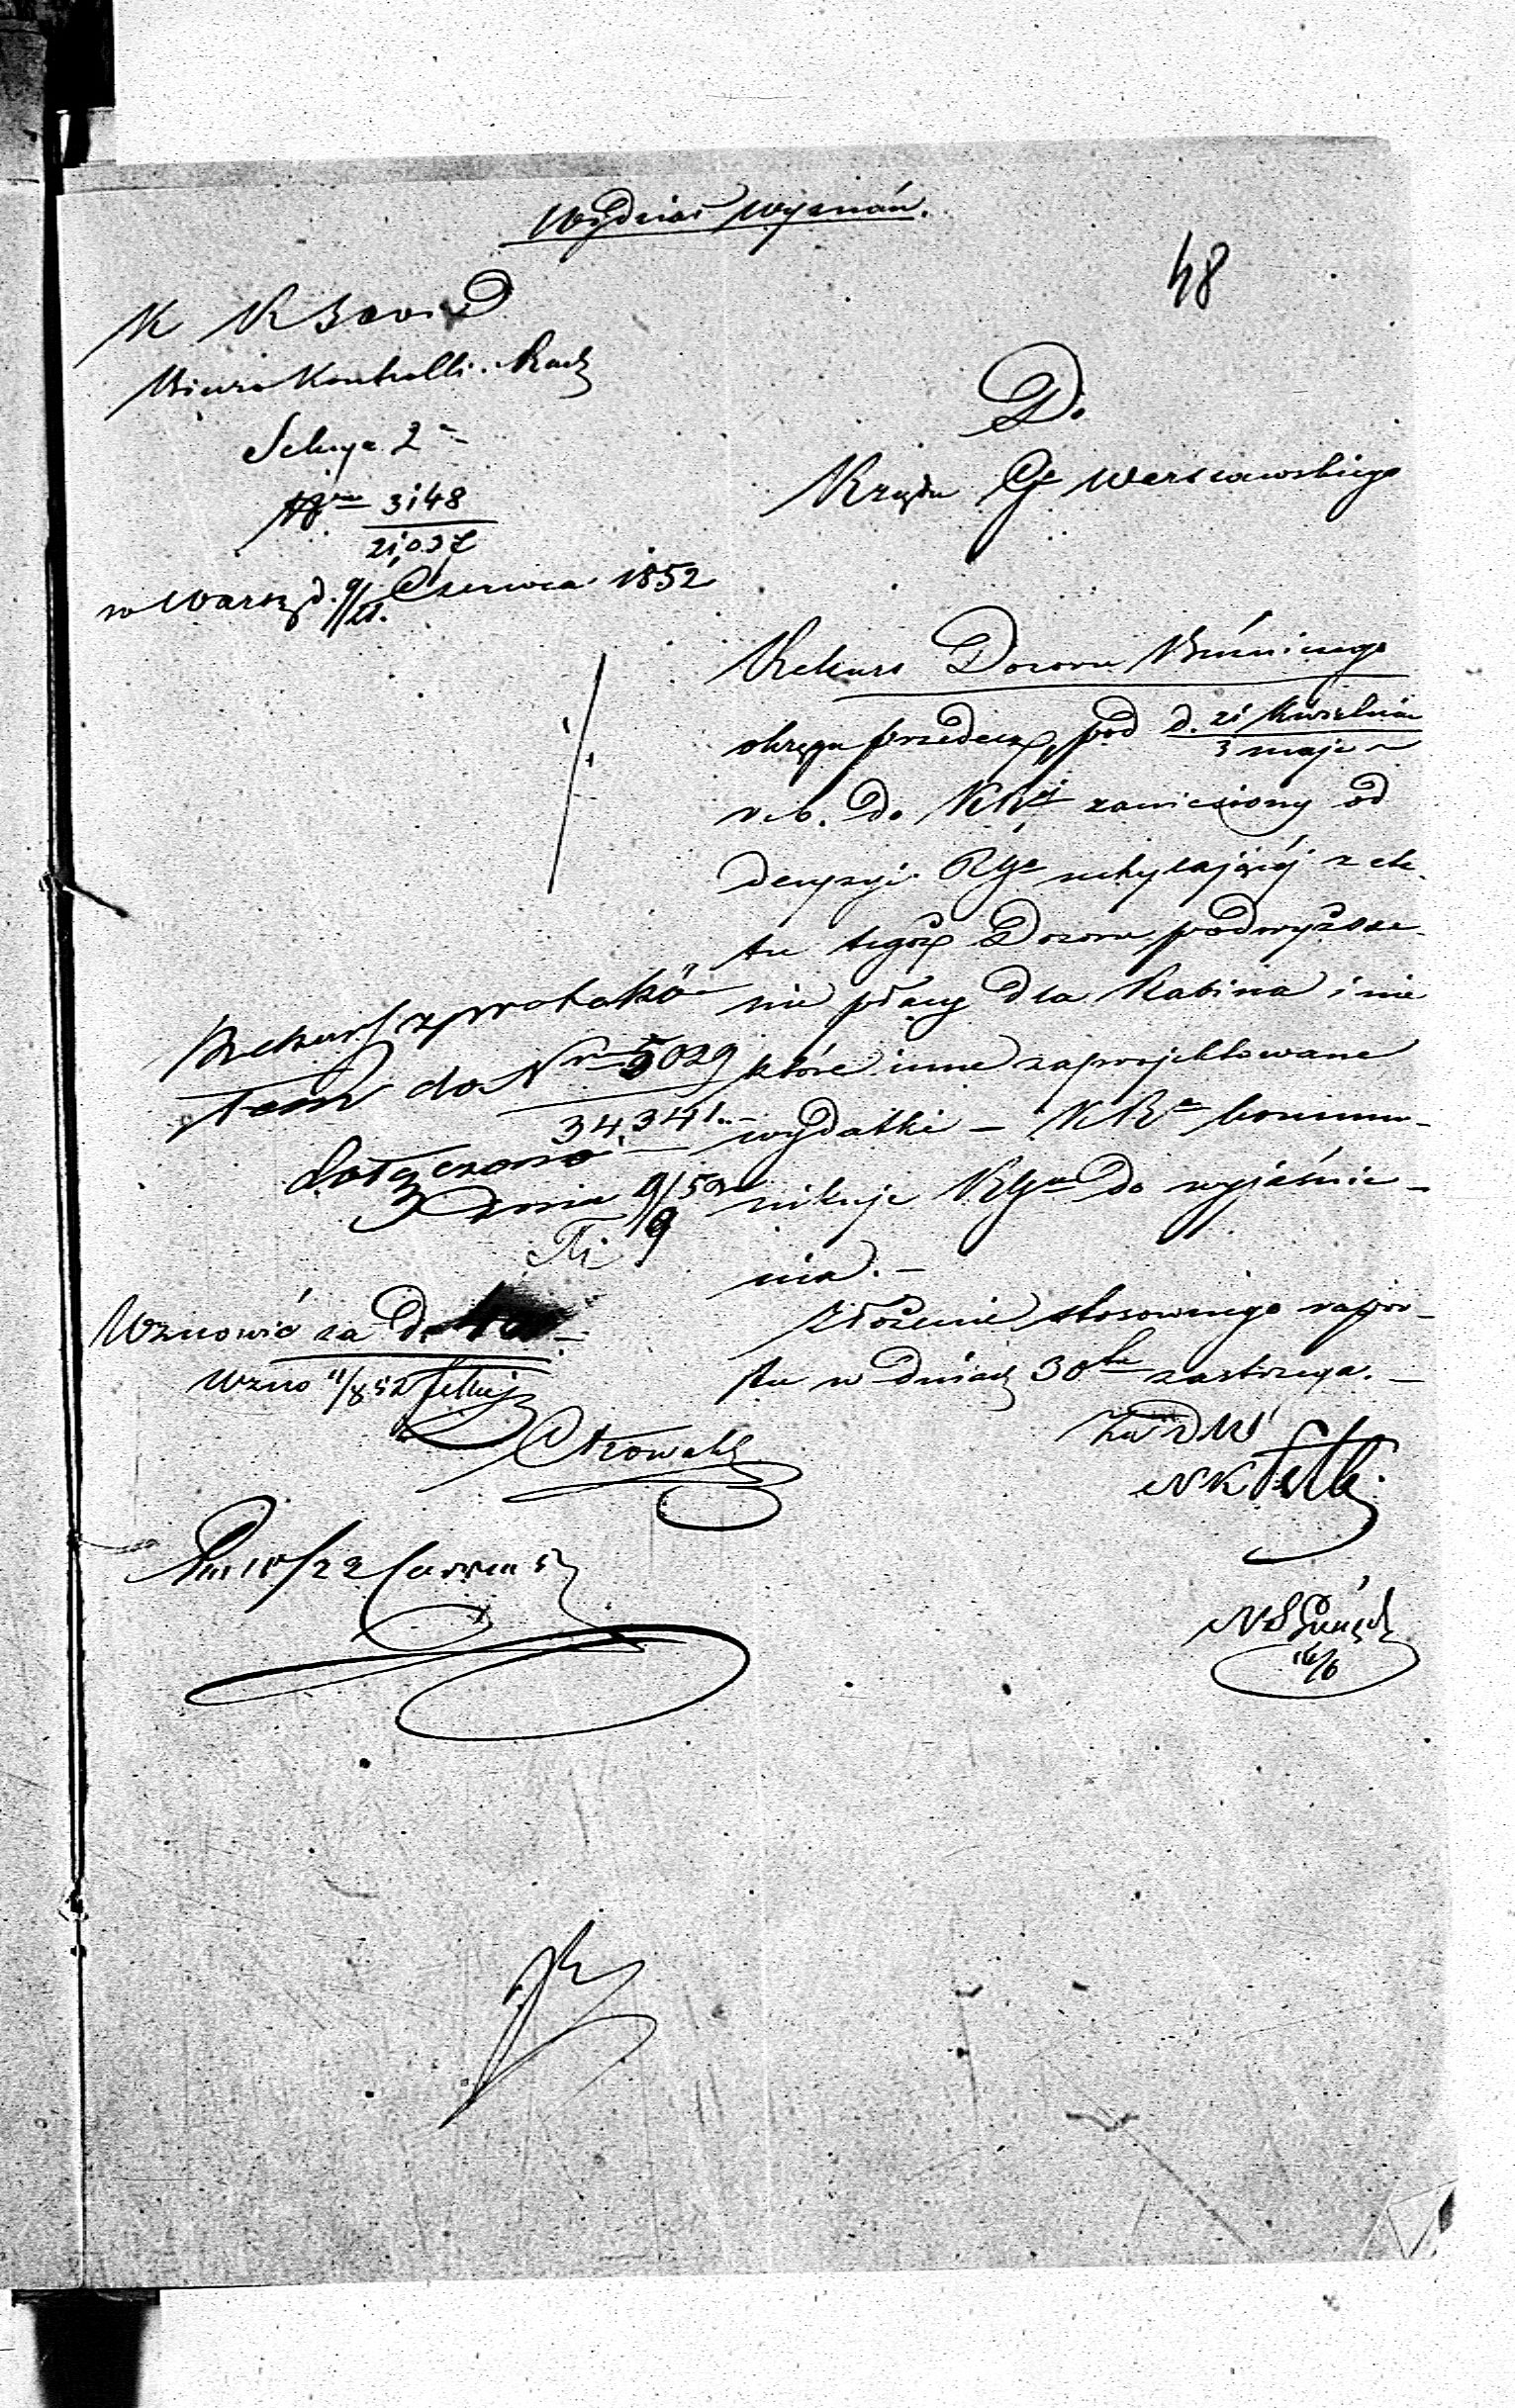 Wydział Wyznań.
48
K R S W i D
Biuro Kontrolli i Rach
Sekcya 2a
Nro 3148
21,037
w Warsz. d. 9/21. Czerwca 1852
Do
Rządu Go Warszawskiego
Rekurs Dozoru Bóżniczego
okręgu przedecz, pod d. 21 Kwietnia
3 maja
r. b. do KRej zaniesiony od
decyzyi RGo uchylającéj z eta-
tu tegoż Dozoru podwyższe-
nie płacy dla Rabina i nie
które inne zaprojektowane
wydatki – KRa kommu-
nikuje RGu do wyjaśnie-
nia. –
Złożenie stosownego rapor-
tu w dniach 30tu zastrzega. –
Rekurs z protokó-
łem do Nro 5029
34,341
dołączono
dnia 9/9 52
Wznowić za d.
Wzno 11/8 52
Za D W
N K
N S
16/6